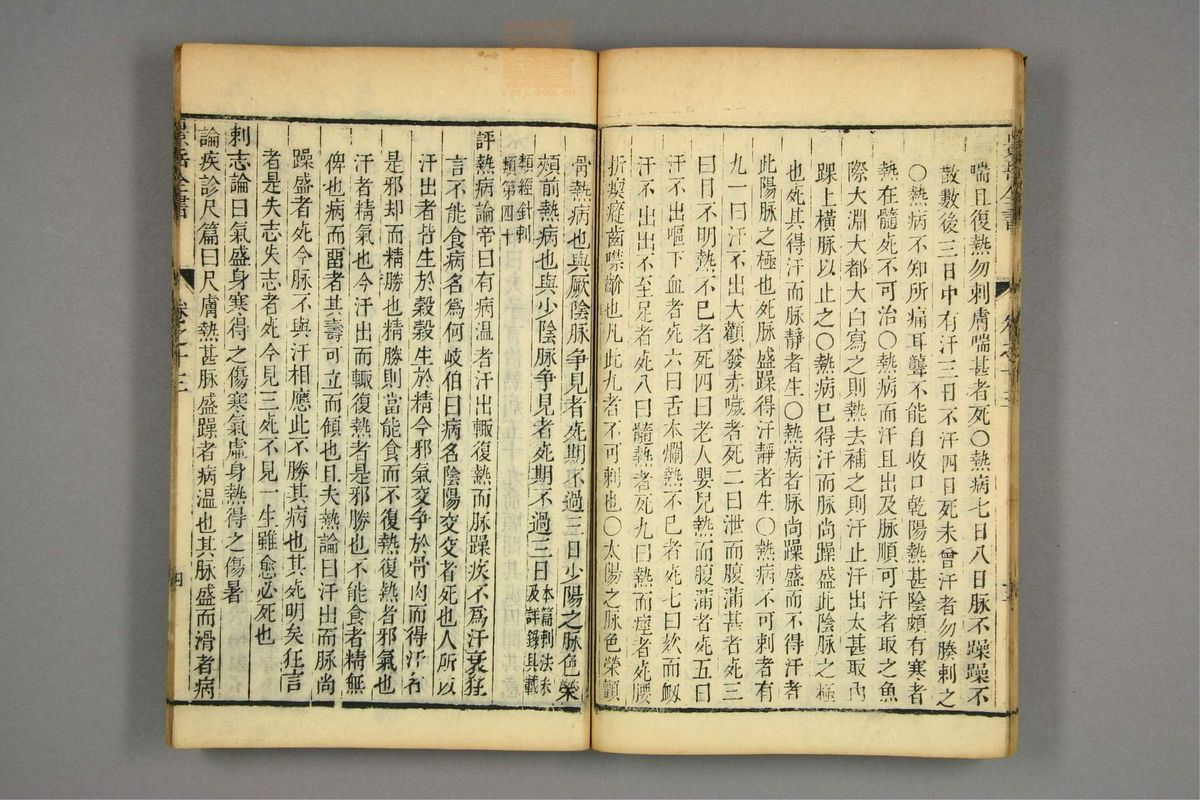 喘且復熱勿刺膚喘甚者死○熱病七日八日脉不躁躁不
散數後三日中有汗三日不汗四日死未曾汗者勿腠刺之
○熱病不知所痛耳聾不能自收口乾陽熱甚陰頗有寒者
熱在髓死不可治○熱病而汗且出及脉順可汗者取之魚
際大淵大都大白寫之則熱去補之則汗止汗出太甚取內
踝上橫脉以止之○熱病已得汗而脉尚躁盛此陰脉之極
也死其得汗而脉靜者生○熱病者脉尚躁盛而不得汗者
此陽脉之極也死脉盛躁得汗靜者生○熱病不可刺者有
九一曰汗不出大顴發赤噦者死二曰泄而腹滿甚者死三
曰目不明熱不已者死四曰老人嬰兒熱而腹滿者死五曰
汗不出嘔下血者死六曰舌本爛熱不已者死七曰欬而衂
汗不出出不至足者死八曰髓熱者死九曰熱而痙者死腰
折瘈瘲齒噤齘也凡此九者不可刺也○太陽之脉色榮顴
骨熱病也與厥陰脉爭見者死期不過三日少陽之脉色榮
頰前熱病也與少陰脉爭見者死期不過三日本篇刺法未及詳錄具載
類經針刺類第四十
評熱病論帝曰有病温者汗出輒復熱而脉躁疾不爲汗衰狂
言不能食病名爲何岐伯曰病名陰陽交交者死也人所以
汗出者皆生於穀穀生於精今邪氣交爭於骨肉而得汗者
是邪却而精勝也精勝則當能食而不復熱復熱者邪氣也
汗者精氣也今汗出而輒復熱者是邪勝也不能食者精無
俾也病而留者其壽可立而傾也且夫熱論曰汗出而脉尚
躁盛者死今脉不與汗相應此不勝其病也其死明矣狂言
者是失志失志者死今見三死不見一生雖愈必死也
刺志論曰氣盛身寒得之傷寒氣虛身熱得之傷暑
論疾診尺篇曰尺膚熱甚脉盛躁者病温也其脉盛而滑者病
景岳全書
卷之十三
四